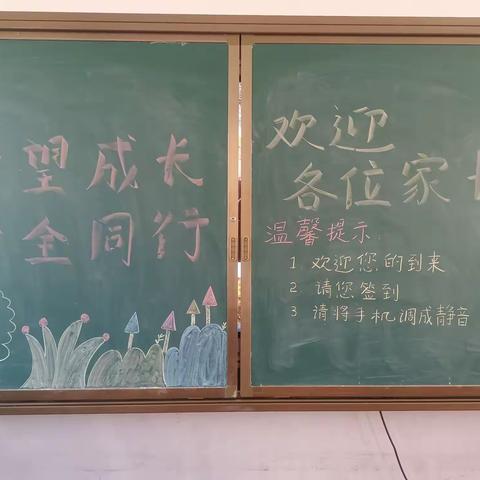 望成长
全同行
欢迎
各位家长
温馨提示
1 欢迎您的到来
2 请您签到
3 请将手机调成静音